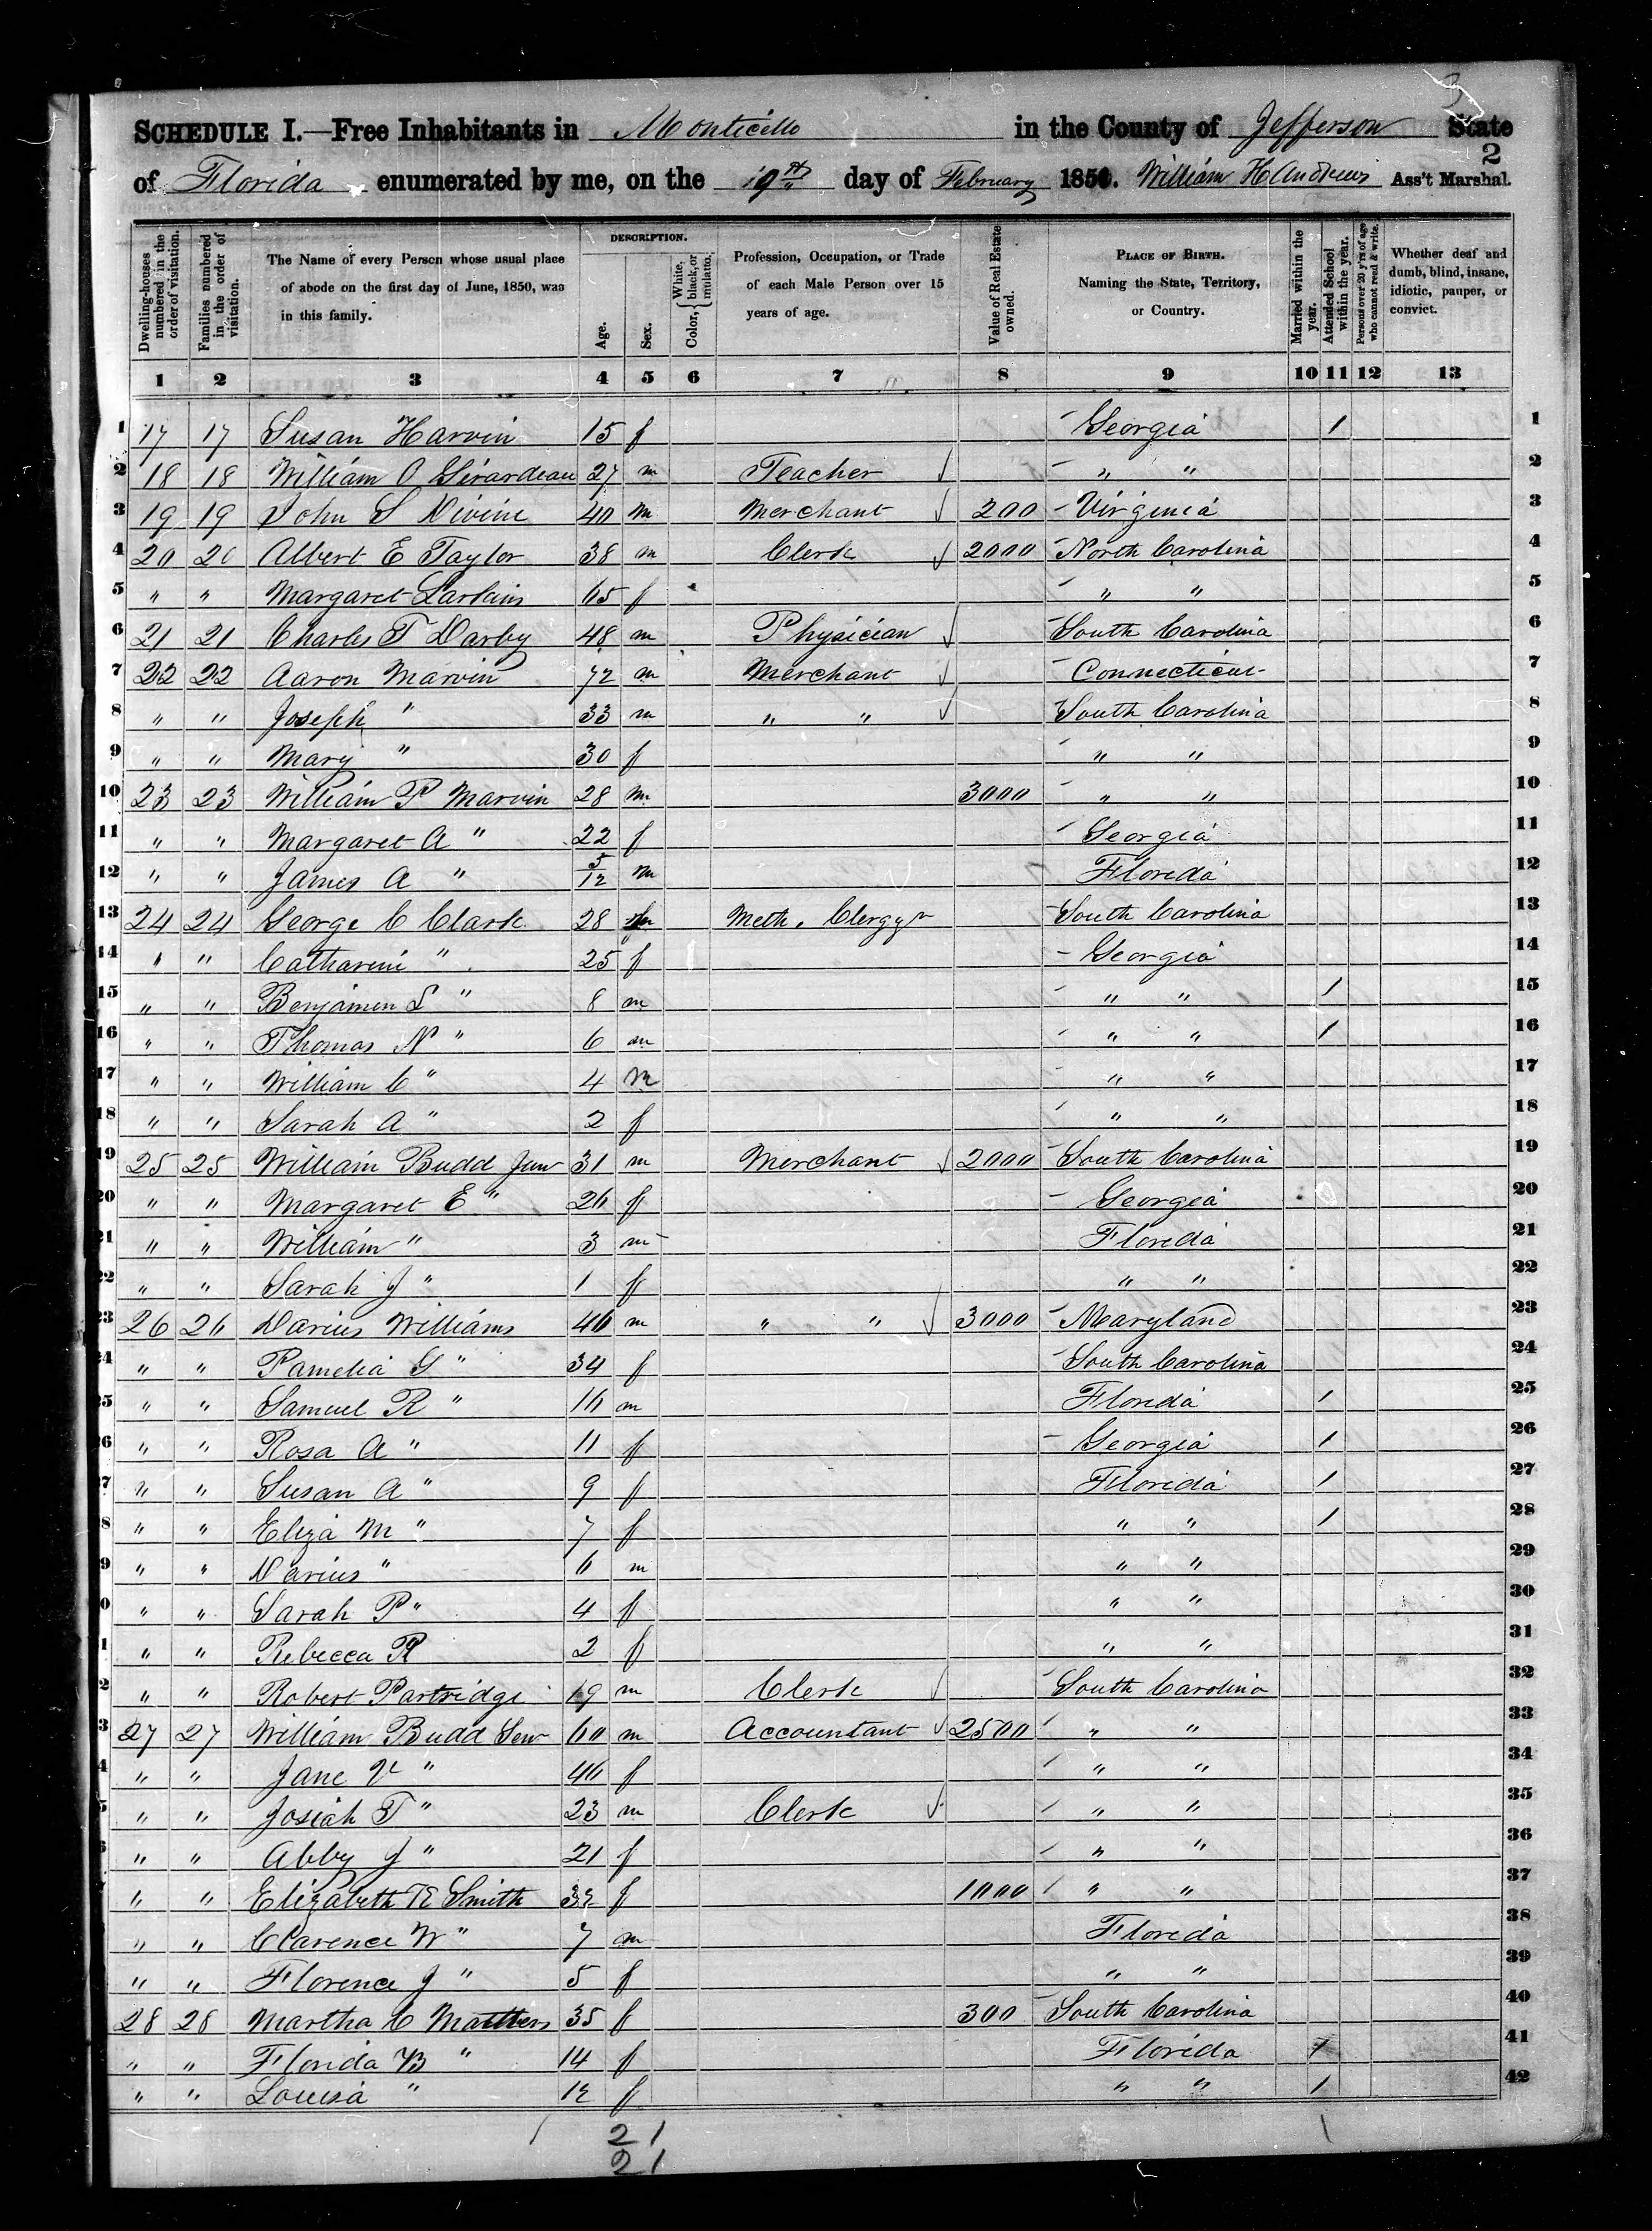 3
SCHEDULE I.—Free Inhabitants in Monticello in the County of Jefferson State
2
of Florida enumerated by me, on the 19th day of February 1850. William H Andrews Ass't Marshal.
Dwelling-houses numbered in the order of visitation.
Families numbered in the order of visitation.
The Name of every Person whose usual place of abode on the first day of June, 1850, was in this family.
DESCRIPTION.
Age.
Sex.
Color, White, black, or mulatto.
Profession, Occupation, or Trade of each Male Person over 15 years of age.
Value of Real Estate owned.
PLACE OF BIRTH. Naming the State, Territory, or Country.
Married within the year.
Attended School within the year.
Persons over 20 y'rs of age who cannot read & write.
Whether deaf and dumb, blind, insane, idiotic, pauper, or convict.
1 2 3 4 5 6 7 8 9 10 11 12 13
1 17 17 Susan Harvin 15 f Georgia 1 1
2 18 18 William O Girardeau 27 m Teacher ✓ " " 2
3 19 19 John S Divine 40 m Merchant ✓ 200 Virginia 3
4 20 20 Albert E Taylor 38 m Clerk ✓ 2000 North Carolina 4
5 " " Margaret Larkins 65 f " " 5
6 21 21 Charles T Darby 48 m Physician ✓ South Carolina 6
7 22 22 Aaron Marvin 72 m Merchant ✓ Connecticut 7
8 " " Joseph " 33 m " " ✓ South Carolina 8
9 " " Mary " 30 f " " 9
10 23 23 William P Marvin 28 m 3000 " " 10
11 " " Margaret A " 22 f Georgia 11
12 " " James A " 5/12 m Florida 12
13 24 24 George C Clark 28 m Meth. Clergy South Carolina 13
14 " " Catharine " 25 f Georgia 14
15 " " Benjamin L " 8 m " " 1 15
16 " " Thomas N " 6 m " " 1 16
17 " " William C " 4 m " " 17
18 " " Sarah A " 2 f " " 18
19 25 25 William Budd Junr 31 m Merchant ✓ 2000 South Carolina 19
20 " " Margaret E " 26 f Georgia 20
21 " " William " 3 m Florida 21
22 " " Sarah J " 1 f " " 22
23 26 26 Darius Williams 46 m " " ✓ 3000 Maryland 23
24 " " Pamelia G " 34 f South Carolina 24
25 " " Samuel R " 16 m Florida 1 25
26 " " Rosa A " 11 f Georgia 1 26
27 " " Susan A " 9 f Florida 1 27
28 " " Eliza M " 7 f " " 1 28
29 " " Darius " 6 m " " 29
30 " " Sarah P " 4 f " " 30
31 " " Rebecca R 2 f " " 31
32 " " Robert Partridge 19 m Clerk ✓ South Carolina 32
33 27 27 William Budd Senr 60 m Accountant ✓ 2500 " " 33
34 " " Jane V " 46 f " " 34
35 " " Josiah T " 23 m Clerk ✓ " " 35
36 " " Abby J " 21 f " " 36
37 " " Elizabeth R Smith 32 f 1000 " " 37
38 " " Clarence W " 7 m Florida 38
39 " " Florence J " 5 f " " 39
40 28 28 Martha C Matthers 35 f 300 South Carolina 40
41 " " Florida B " 14 f Florida 1 41
42 " " Louisa " 12 f " " 1 42
21
21